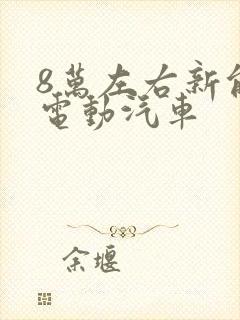 8萬左右新能
電動汽車
余堰